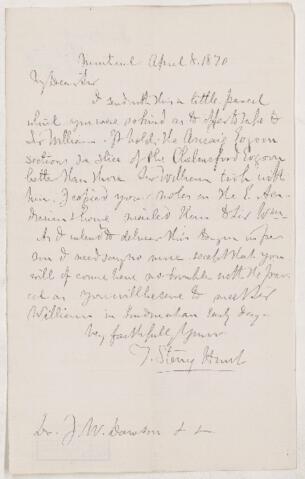 Montreal April 8. 1870
My Dear Sir
I send with this a little parcel
which you were so kind as to offer to take to
Sir William. It holds the Eozoon
sections a slice of the Chelmsford Eozoon
better than those Sir William took with
him. I copied your notes on the
have mailed them to Sir Wm
As I intend to deliver this in per
son I need say no more except that you
will of course have no trouble with the par
cel as you will be sure to meet Sir
William in London an early day.
Very faithfully Yours
T. Sterry Hunt
Dr. J. W. Dawson